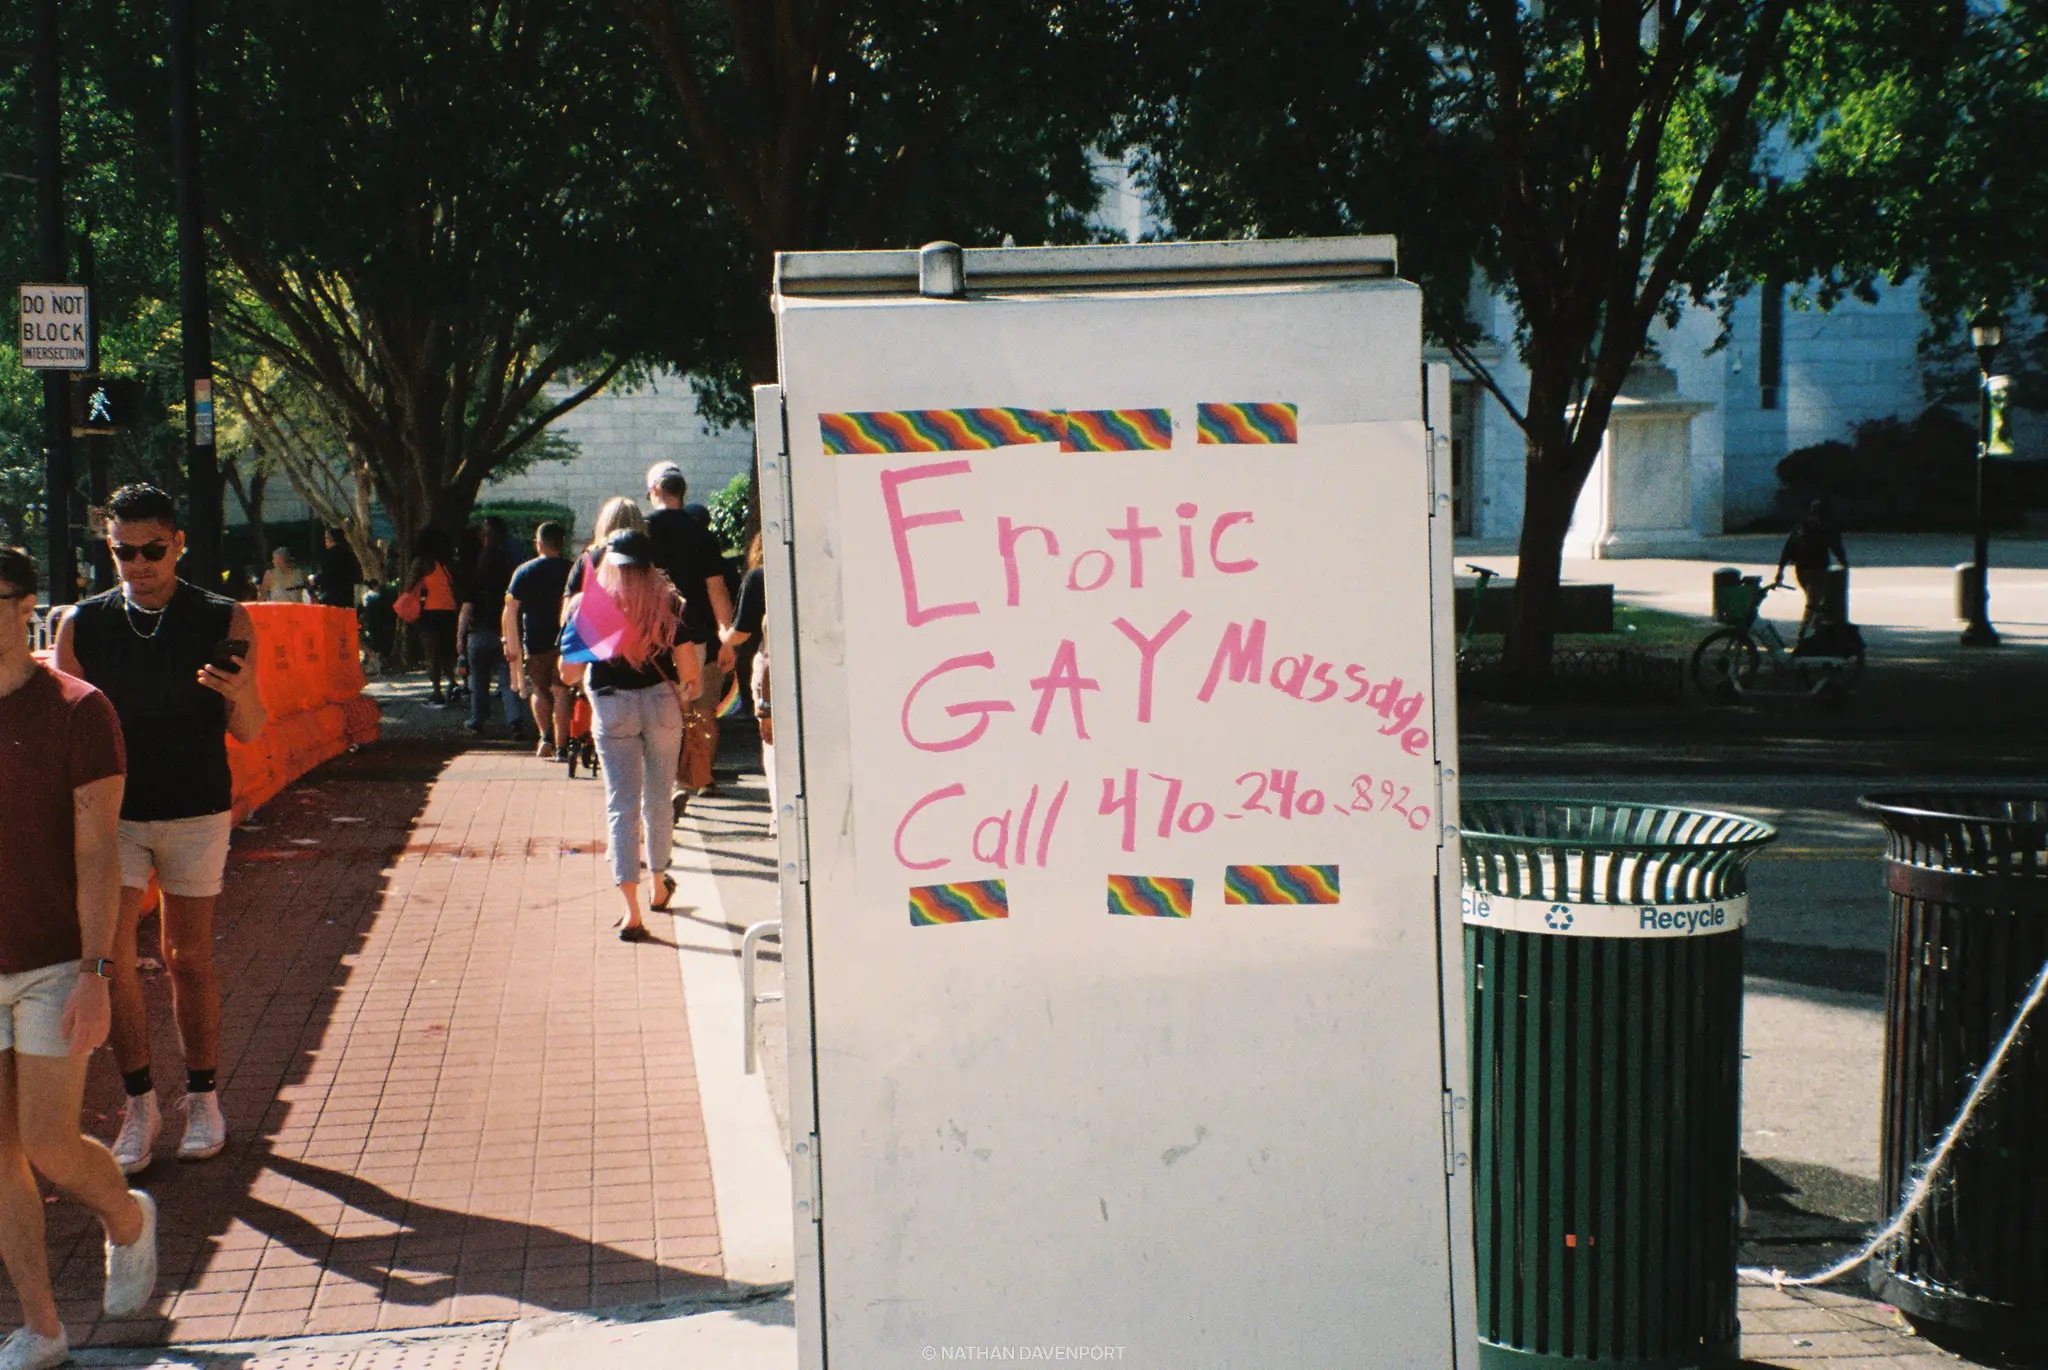 DO NOT
BLOCK
INTERSECTION
Erotic
GAY Massage
Call 470-240-8920
cle
Recycle
© NATHAN DAVENPORT